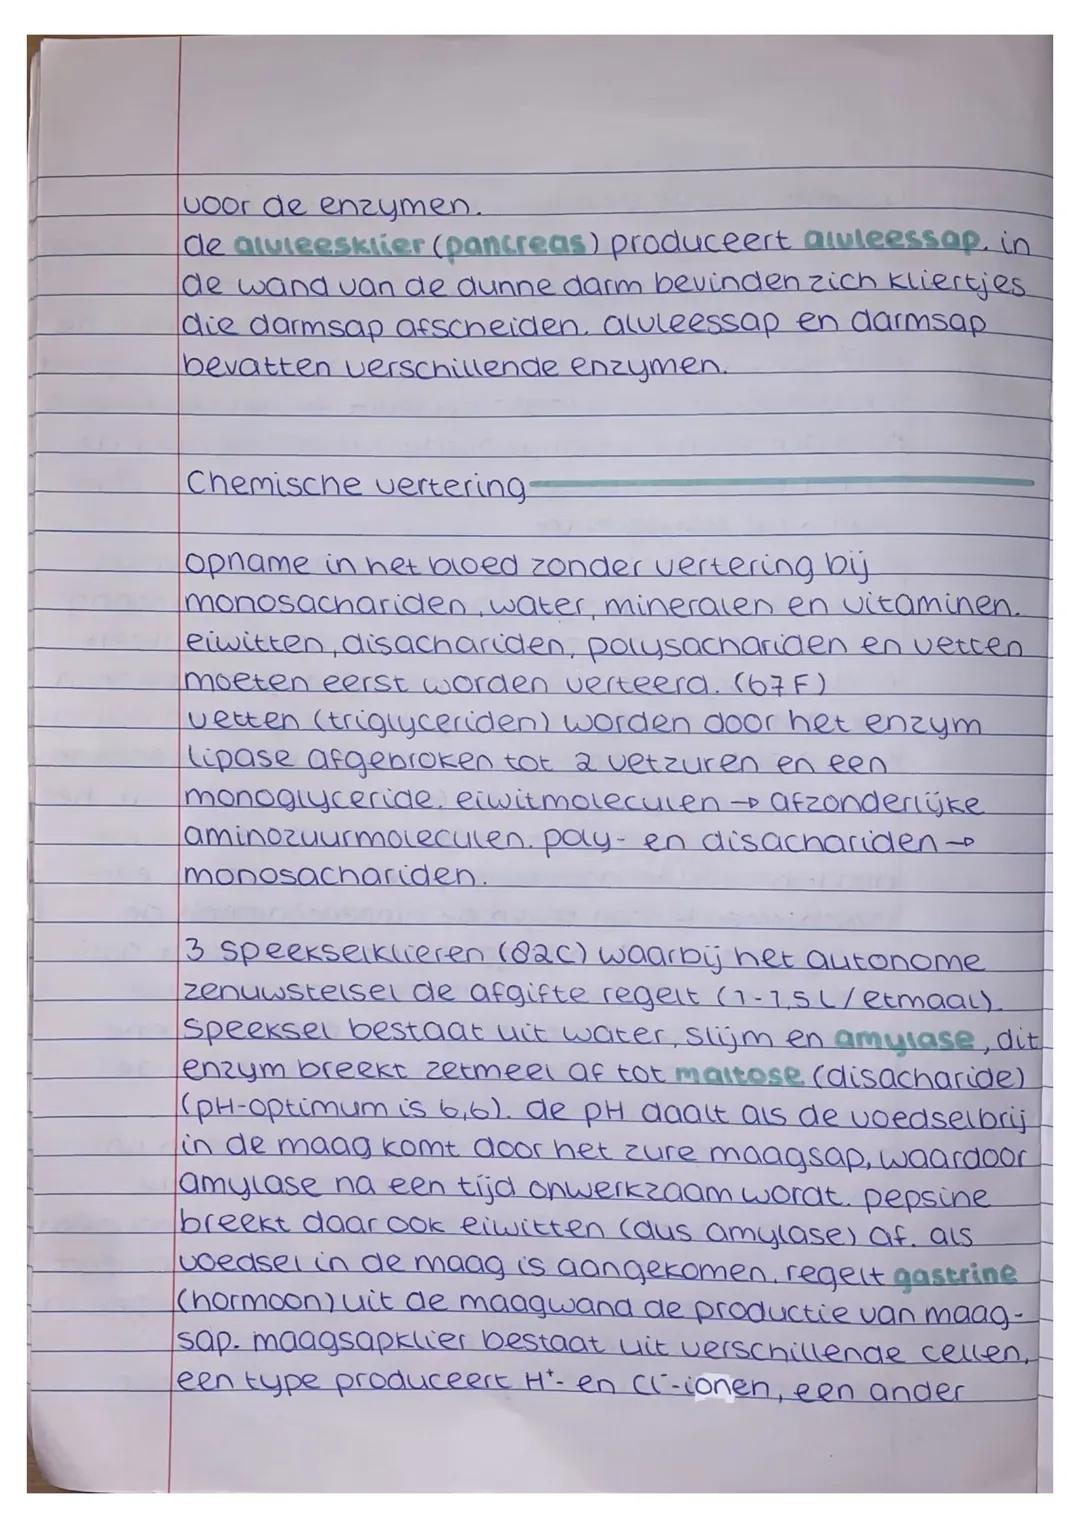 voor de enzymen.
de alvleesklier (pancreas) produceert alvleessap. in
de wand van de dunne darm bevinden zich kliertjes
die darmsap afscheiden. alvleessap en darmsap
bevatten verschillende enzymen.
Chemische vertering
opname in het bloed zonder vertering bij
monosachariden, water, mineralen en vitaminen.
eiwitten, disachariden, polysachariden en vetten
moeten eerst worden verteerd. (67F)
vetten (triglyceriden) worden door het enzym
lipase afgebroken tot 2 vetzuren en een
monoglyceride. eiwitmoleculen → afzonderlijke
aminozuurmoleculen. poly- en disachariden →
monosachariden.
3 speekselklieren (82C) waarbij het autonome
zenuwstelsel de afgifte regelt (1-1,5L/etmaal).
speeksel bestaat uit water, slijm en amylase, dit
enzym breekt zetmeel af tot maltose (disacharide)
(pH-optimum is 6,6). de pH daalt als de voedselbrij
in de maag komt door het zure maagsap, waardoor
amylase na een tijd onwerkzaam wordt. pepsine
breekt daar ook eiwitten (dus amylase) af. als
voedsel in de maag is aangekomen, regelt gastrine
(hormoon) uit de maagwand de productie van maag-
sap. maagsapklier bestaat uit verschillende cellen,
een type produceert H⁺- en Cl⁻-ionen, een ander